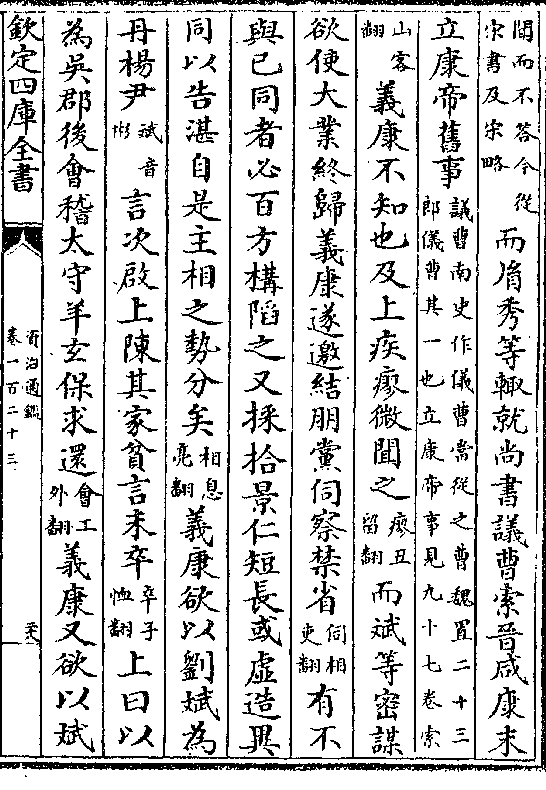 聞而不答今從
宋書及宋略
而胤秀等輙就尚書議曹索晉咸康末
立康帝舊事
議曹南史作儀曹當從之曹魏置二十三
郎儀曹其一也立康帝事見九十七卷索
山客
翻
義康不知也及上疾瘳微聞之
瘳丑
留翻
而斌等密謀
欲使大業終歸義康遂邀結朋黨伺察禁省
伺相
吏翻
有不
與已同者必百方構陷之又採拾景仁短長或虛造異
同以告湛自是主相之勢分矣
相息
亮翻
義康欲以劉斌為
丹楊尹
斌音
彬
言次啟上陳其家貧言未卒
卒子
恤翻
上曰以
為吳郡後會稽太守羊玄保求還
會工
外翻
義康又欲以斌
欽定四庫全書
資治通鑑
卷一百二十三